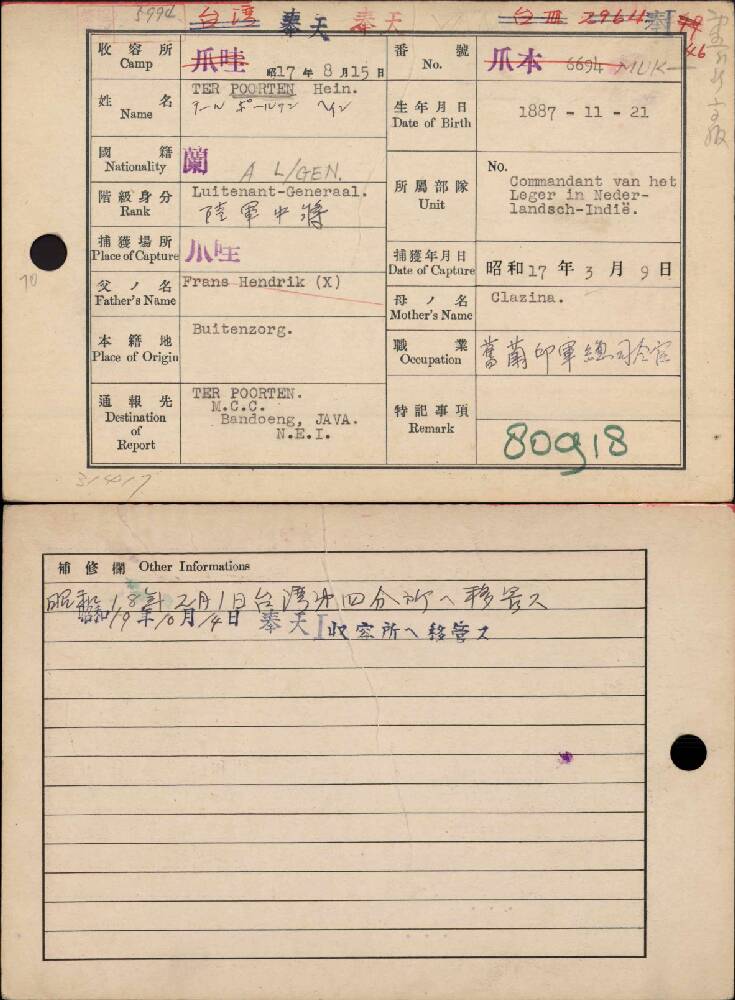 5994 台湾 奉天 奉天 台Ⅲ 2964 奉Ⅰ
46
收容所 Camp 爪哇 昭17年8月15日 番號 No. 爪本 6694 MUK
姓名 Name TER POORTEN Hein. 生年月日 Date of Birth 1887 - 11 - 21
テール ポールテン ヘイン
國籍 Nationality 蘭 A L/GEN.
階級身分 Rank Luitenant-Generaal. 所屬部隊 Unit No. Commandant van het
Leger in Neder-
landsch-Indië.
陸軍中將
捕獲場所 Place of Capture 爪哇 捕獲年月日 Date of Capture 昭和17年3月9日
父ノ名 Father's Name Frans Hendrik (X) 母ノ名 Mother's Name Clazina.
本籍地 Place of Origin Buitenzorg. 職業 Occupation 舊蘭印軍總司令官
通報先 Destination of Report TER POORTEN.
M.C.C.
Bandoeng, JAVA.
N.E.I.
特記事項 Remark 80918
31417
70
補修欄 Other Informations
昭和18年2月1日台湾第四分所へ移管ス
昭和19年10月14日 奉天Ⅰ收容所へ移管ス